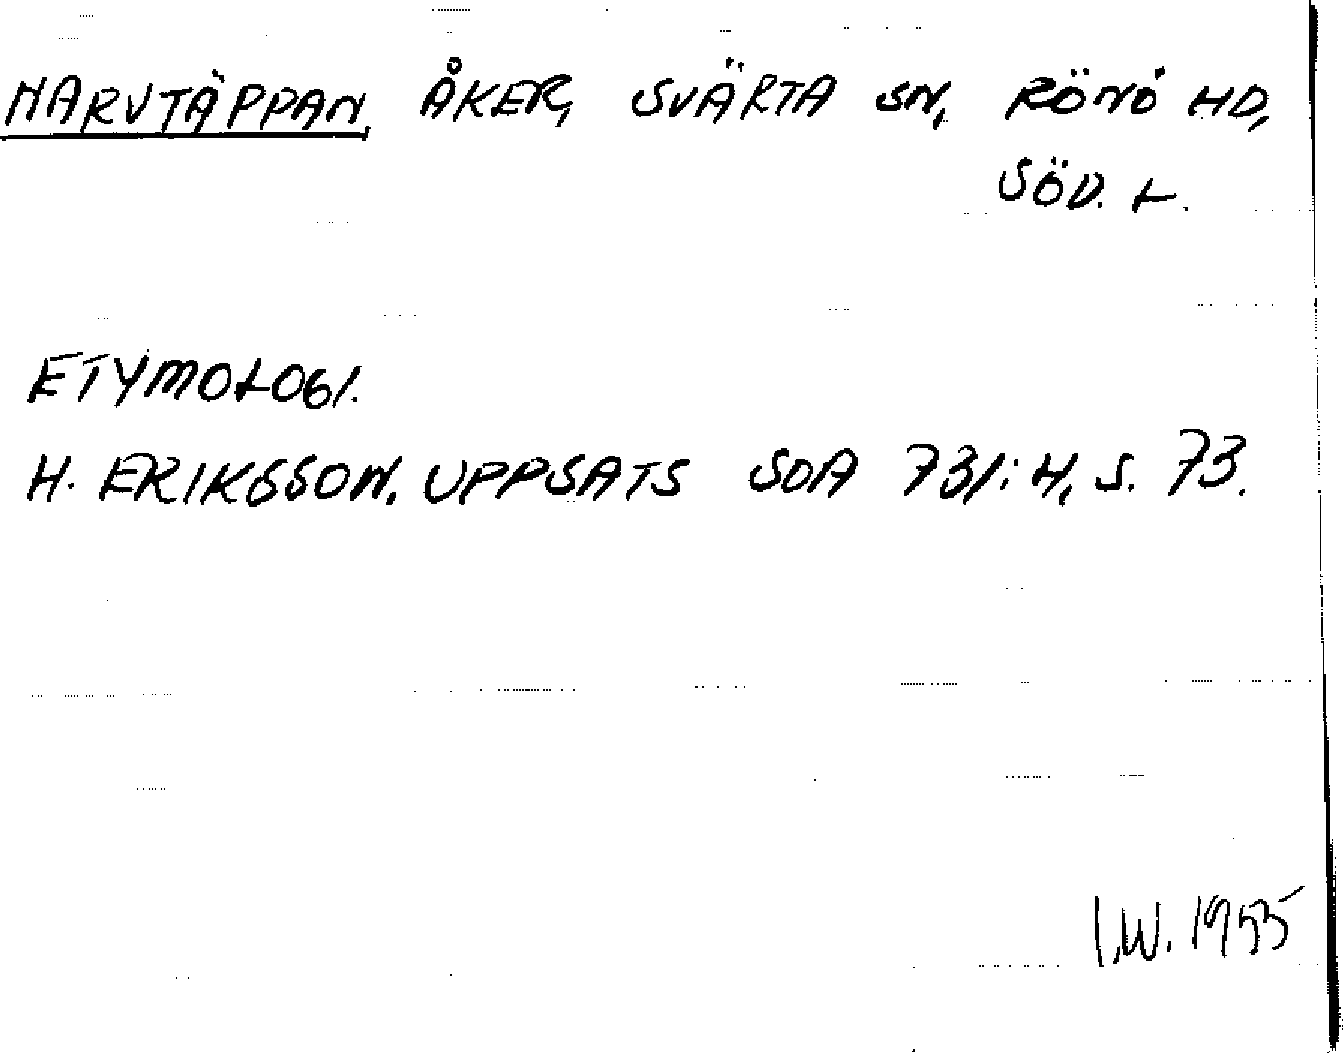 NARVTÄPPAN, ÅKER, SVÄRTA SN, RÖNÖ HD,
SÖD. L.
ETYMOLOGI.
H. ERIKSSON, UPPSATS SOA 731:H, S. 73.
I.W. 1955